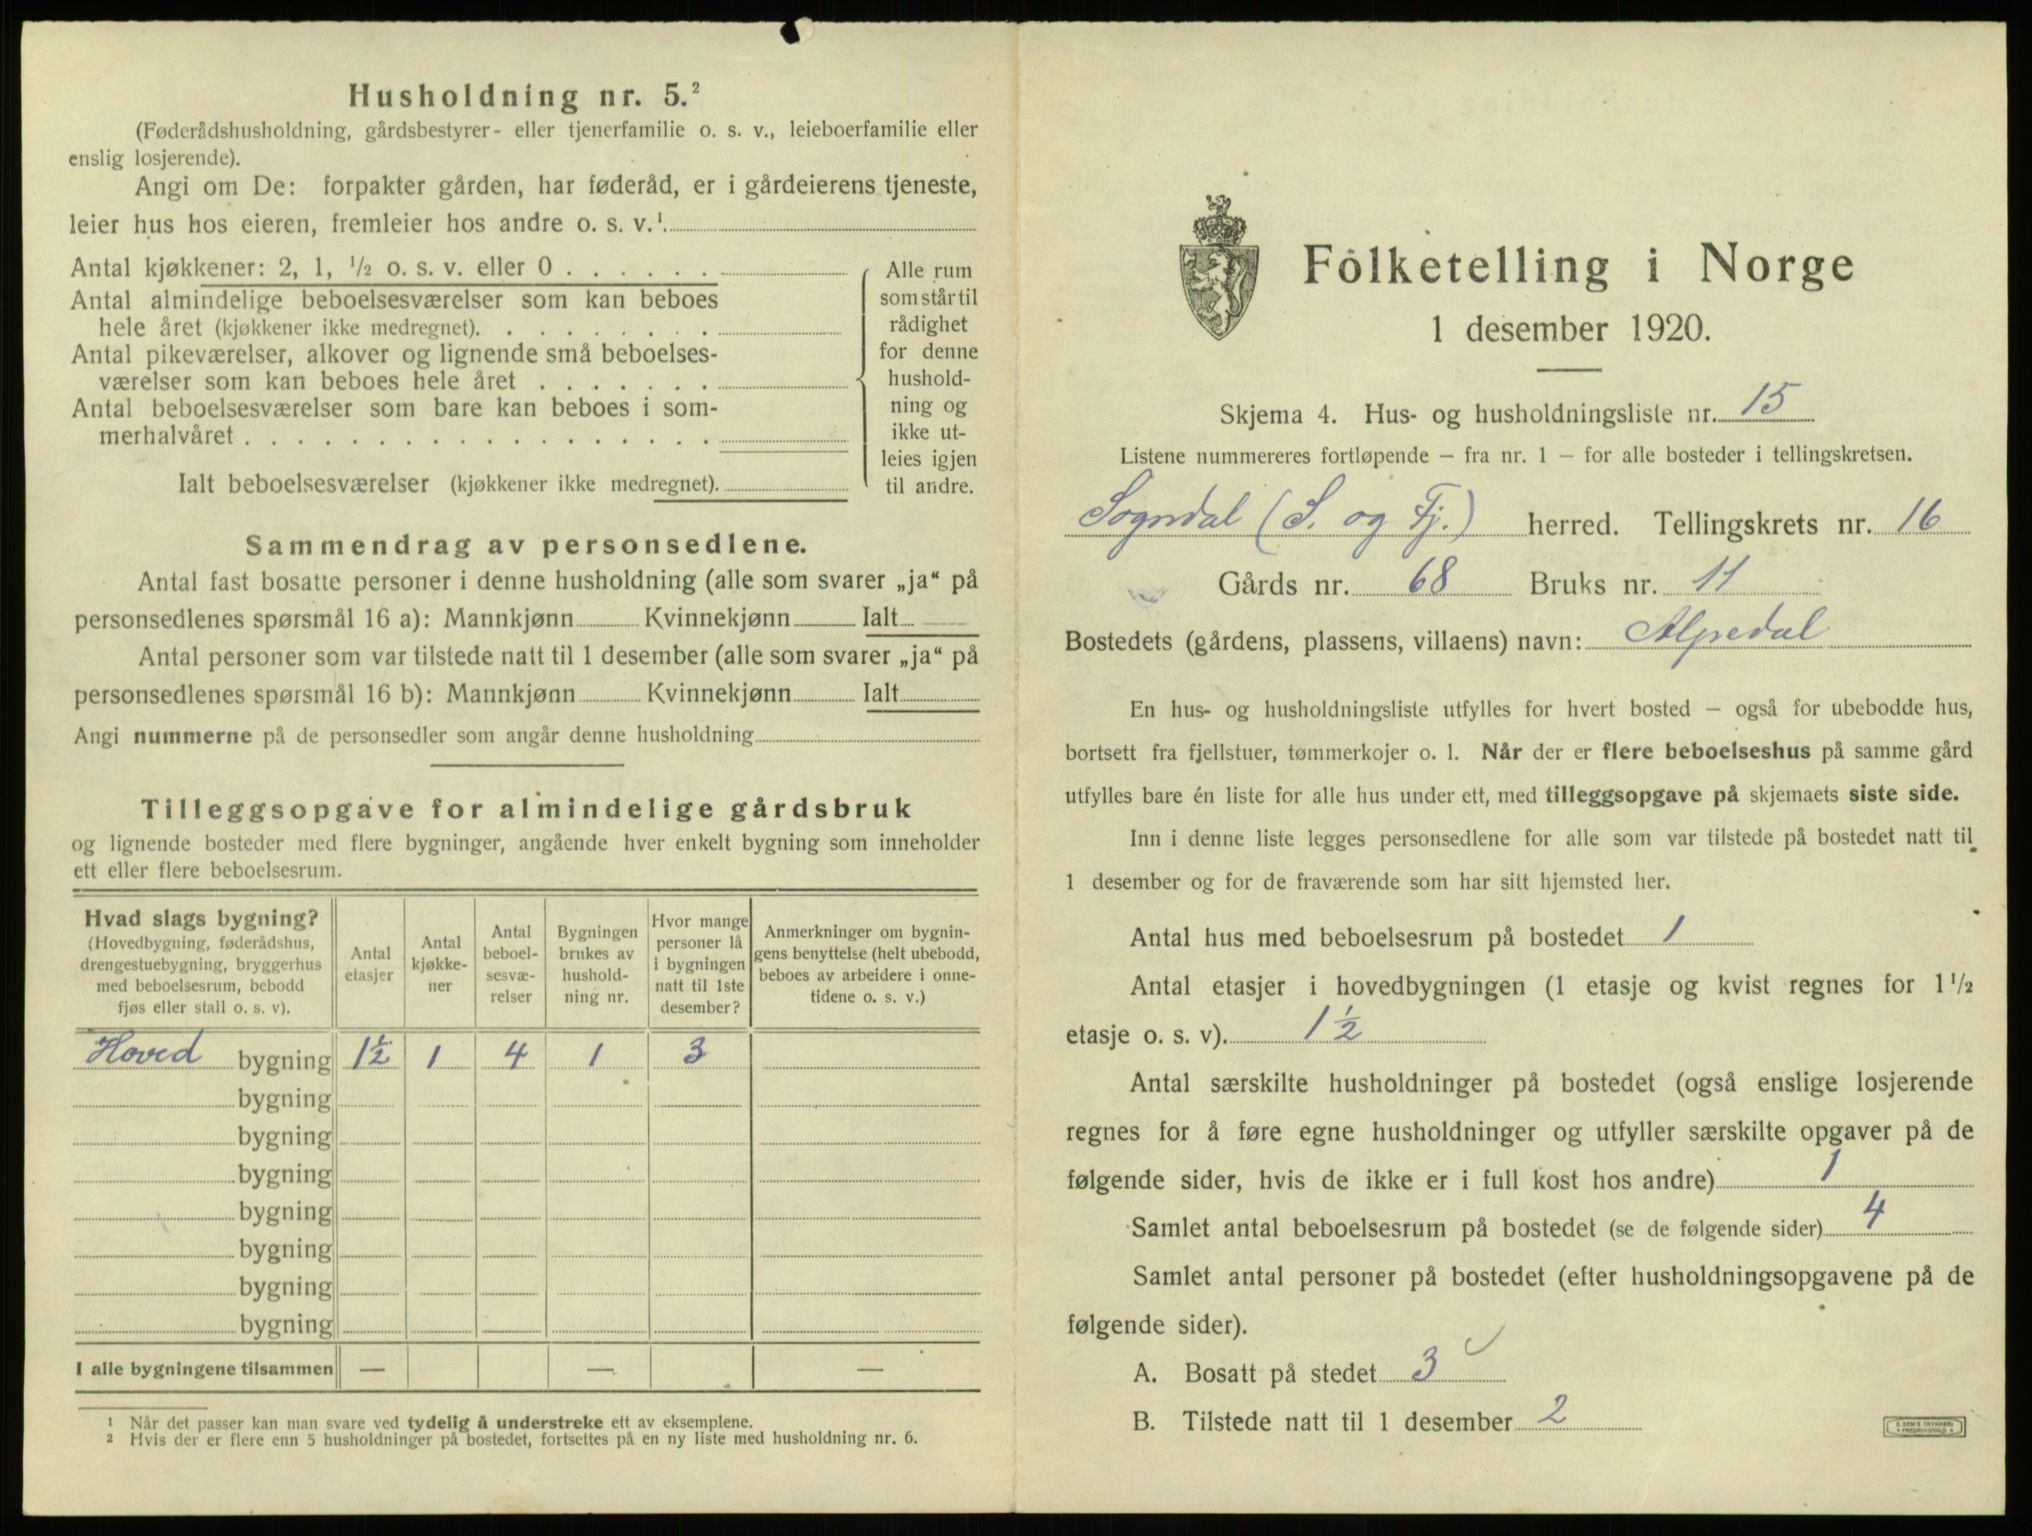 Husholdning nr. 5.²
(Føderådshusholdning, gårdsbestyrer- eller tjenerfamilie o. s. v., leieboerfamilie eller
enslig losjerende).
Angi om De: forpakter gården, har føderåd, er i gårdeierens tjeneste,
leier hus hos eieren, fremleier hos andre o. s. v.¹.
Antal kjøkkener: 2, 1, ½ o. s. v. eller 0 . . . . . .
Antal almindelige beboelsesværelser som kan beboes
hele året (kjøkkener ikke medregnet). . . . . . . . .
Antal pikeværelser, alkover og lignende små beboelses-
værelser som kan beboes hele året . . . . . . .
Antal beboelsesværelser som bare kan beboes i som-
merhalvåret . . . . . . . . . . . . . . . . . .
Ialt beboelsesværelser (kjøkkener ikke medregnet).
Alle rum
som står til
rådighet
for denne
hushold-
ning og
ikke ut-
leies igjen
til andre.
Sammendrag av personsedlene.
Antal fast bosatte personer i denne husholdning (alle som svarer „ja“ på
personsedlenes spørsmål 16 a): Mannkjønn Kvinnekjønn Ialt
Antal personer som var tilstede natt til 1 desember (alle som svarer „ja“ på
personsedlenes spørsmål 16 b): Mannkjønn Kvinnekjønn Ialt
Angi nummerne på de personsedler som angår denne husholdning
Tilleggsopgave for almindelige gårdsbruk
og lignende bosteder med flere bygninger, angående hver enkelt bygning som inneholder
ett eller flere beboelsesrum.
Hvad slags bygning?
(Hovedbygning, føderådshus,
drengestuebygning, bryggerhus
med beboelsesrum, bebodd
fjøs eller stall o. s. v).
Antal
etasjer
Antal
kjøkke-
ner
Antal
beboel-
sesvæ-
relser
Bygningen
brukes av
hushold-
ning nr.
Hvor mange
personer lå
i bygningen
natt til 1ste
desember?
Anmerkninger om bygnin-
gens benyttelse (helt ubebodd,
beboes av arbeidere i onne-
tidene o. s. v.)
Hoved bygning 1½ 1 4 1 3
bygning
bygning
bygning
bygning
bygning
bygning
bygning
I alle bygningene tilsammen — — —
¹ Når det passer kan man svare ved tydelig å understreke ett av eksemplene.
² Hvis der er flere enn 5 husholdninger på bostedet, fortsettes på en ny liste med husholdning nr. 6.
Folketelling i Norge
1 desember 1920.
Skjema 4. Hus- og husholdningsliste nr. 15
Listene nummereres fortløpende – fra nr. 1 – for alle bosteder i tellingskretsen.
Sogndal (S. og Fj.) herred. Tellingskrets nr. 16
Gårds nr. 68 Bruks nr. 11
Bostedets (gårdens, plassens, villaens) navn: Alpedal
En hus- og husholdningsliste utfylles for hvert bosted – også for ubebodde hus,
bortsett fra fjellstuer, tømmerkojer o. l. Når der er flere beboelseshus på samme gård
utfylles bare én liste for alle hus under ett, med tilleggsopgave på skjemaets siste side.
Inn i denne liste legges personsedlene for alle som var tilstede på bostedet natt til
1 desember og for de fraværende som har sitt hjemsted her.
Antal hus med beboelsesrum på bostedet 1
Antal etasjer i hovedbygningen (1 etasje og kvist regnes for 1½
etasje o. s. v). 1½
Antal særskilte husholdninger på bostedet (også enslige losjerende
regnes for å føre egne husholdninger og utfyller særskilte opgaver på de
følgende sider, hvis de ikke er i full kost hos andre) 1
Samlet antal beboelsesrum på bostedet (se de følgende sider) 4
Samlet antal personer på bostedet (efter husholdningsopgavene på de
følgende sider).
A. Bosatt på stedet 3 ✓
B. Tilstede natt til 1 desember 2